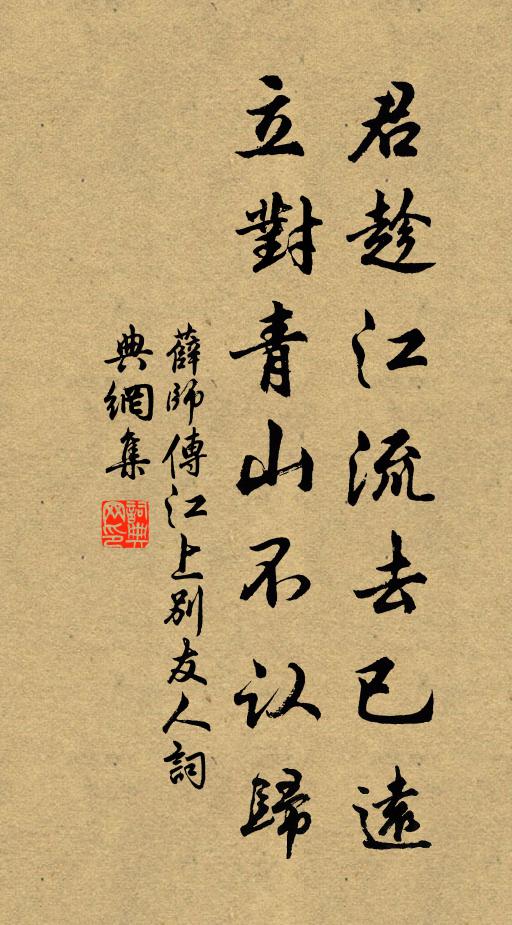 君趁江流去已遠
立對青山不认歸
薛師傳江上別友人詞
典網集
詞典網印